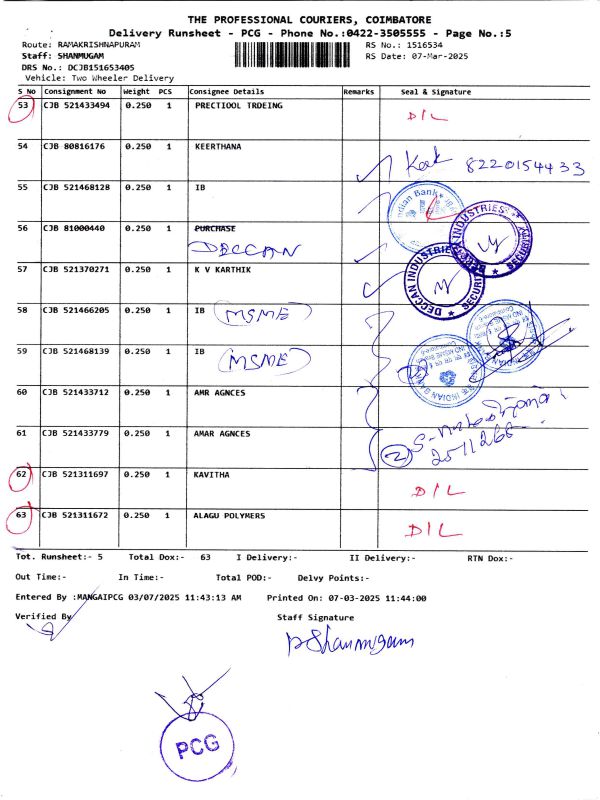 THE PROFESSIONAL COURIERS, COIMBATORE
Delivery Runsheet - PCG - Phone No.:0422-3505555 - Page No.:5
Route: RAMAKRISHNAPURAM RS No.: 1516534
Staff: SHANMUGAM RS Date: 07-Mar-2025
DRS No.: DCJB151653405
Vehicle: Two Wheeler Delivery
S No Consignment No Weight PCS Consignee Details Remarks Seal & Signature
53 CJB 521433494 0.250 1 PRECTIOOL TRDEING D/L
54 CJB 80816176 0.250 1 KEERTHANA
8220154433
55 CJB 521468128 0.250 1 IB
Indian Bank
56 CJB 81000440 0.250 1 PURCHASE
DECCAN
DECCAN INDUSTRIES SECURITY
57 CJB 521370271 0.250 1 K V KARTHIK
DECCAN INDUSTRIES SECURITY
58 CJB 521466205 0.250 1 IB (MSME)
59 CJB 521468139 0.250 1 IB (MSME)
60 CJB 521433712 0.250 1 AMR AGNCES
61 CJB 521433779 0.250 1 AMAR AGNCES
2
62 CJB 521311697 0.250 1 KAVITHA D/L
63 CJB 521311672 0.250 1 ALAGU POLYMERS D/L
Tot. Runsheet:- 5 Total Dox:- 63 I Delivery:- II Delivery:- RTN Dox:-
Out Time:- In Time:- Total POD:- Delvy Points:-
Entered By :MANGAIPCG 03/07/2025 11:43:13 AM Printed On: 07-03-2025 11:44:00
Verified By Staff Signature
P Shanmugam
PCG